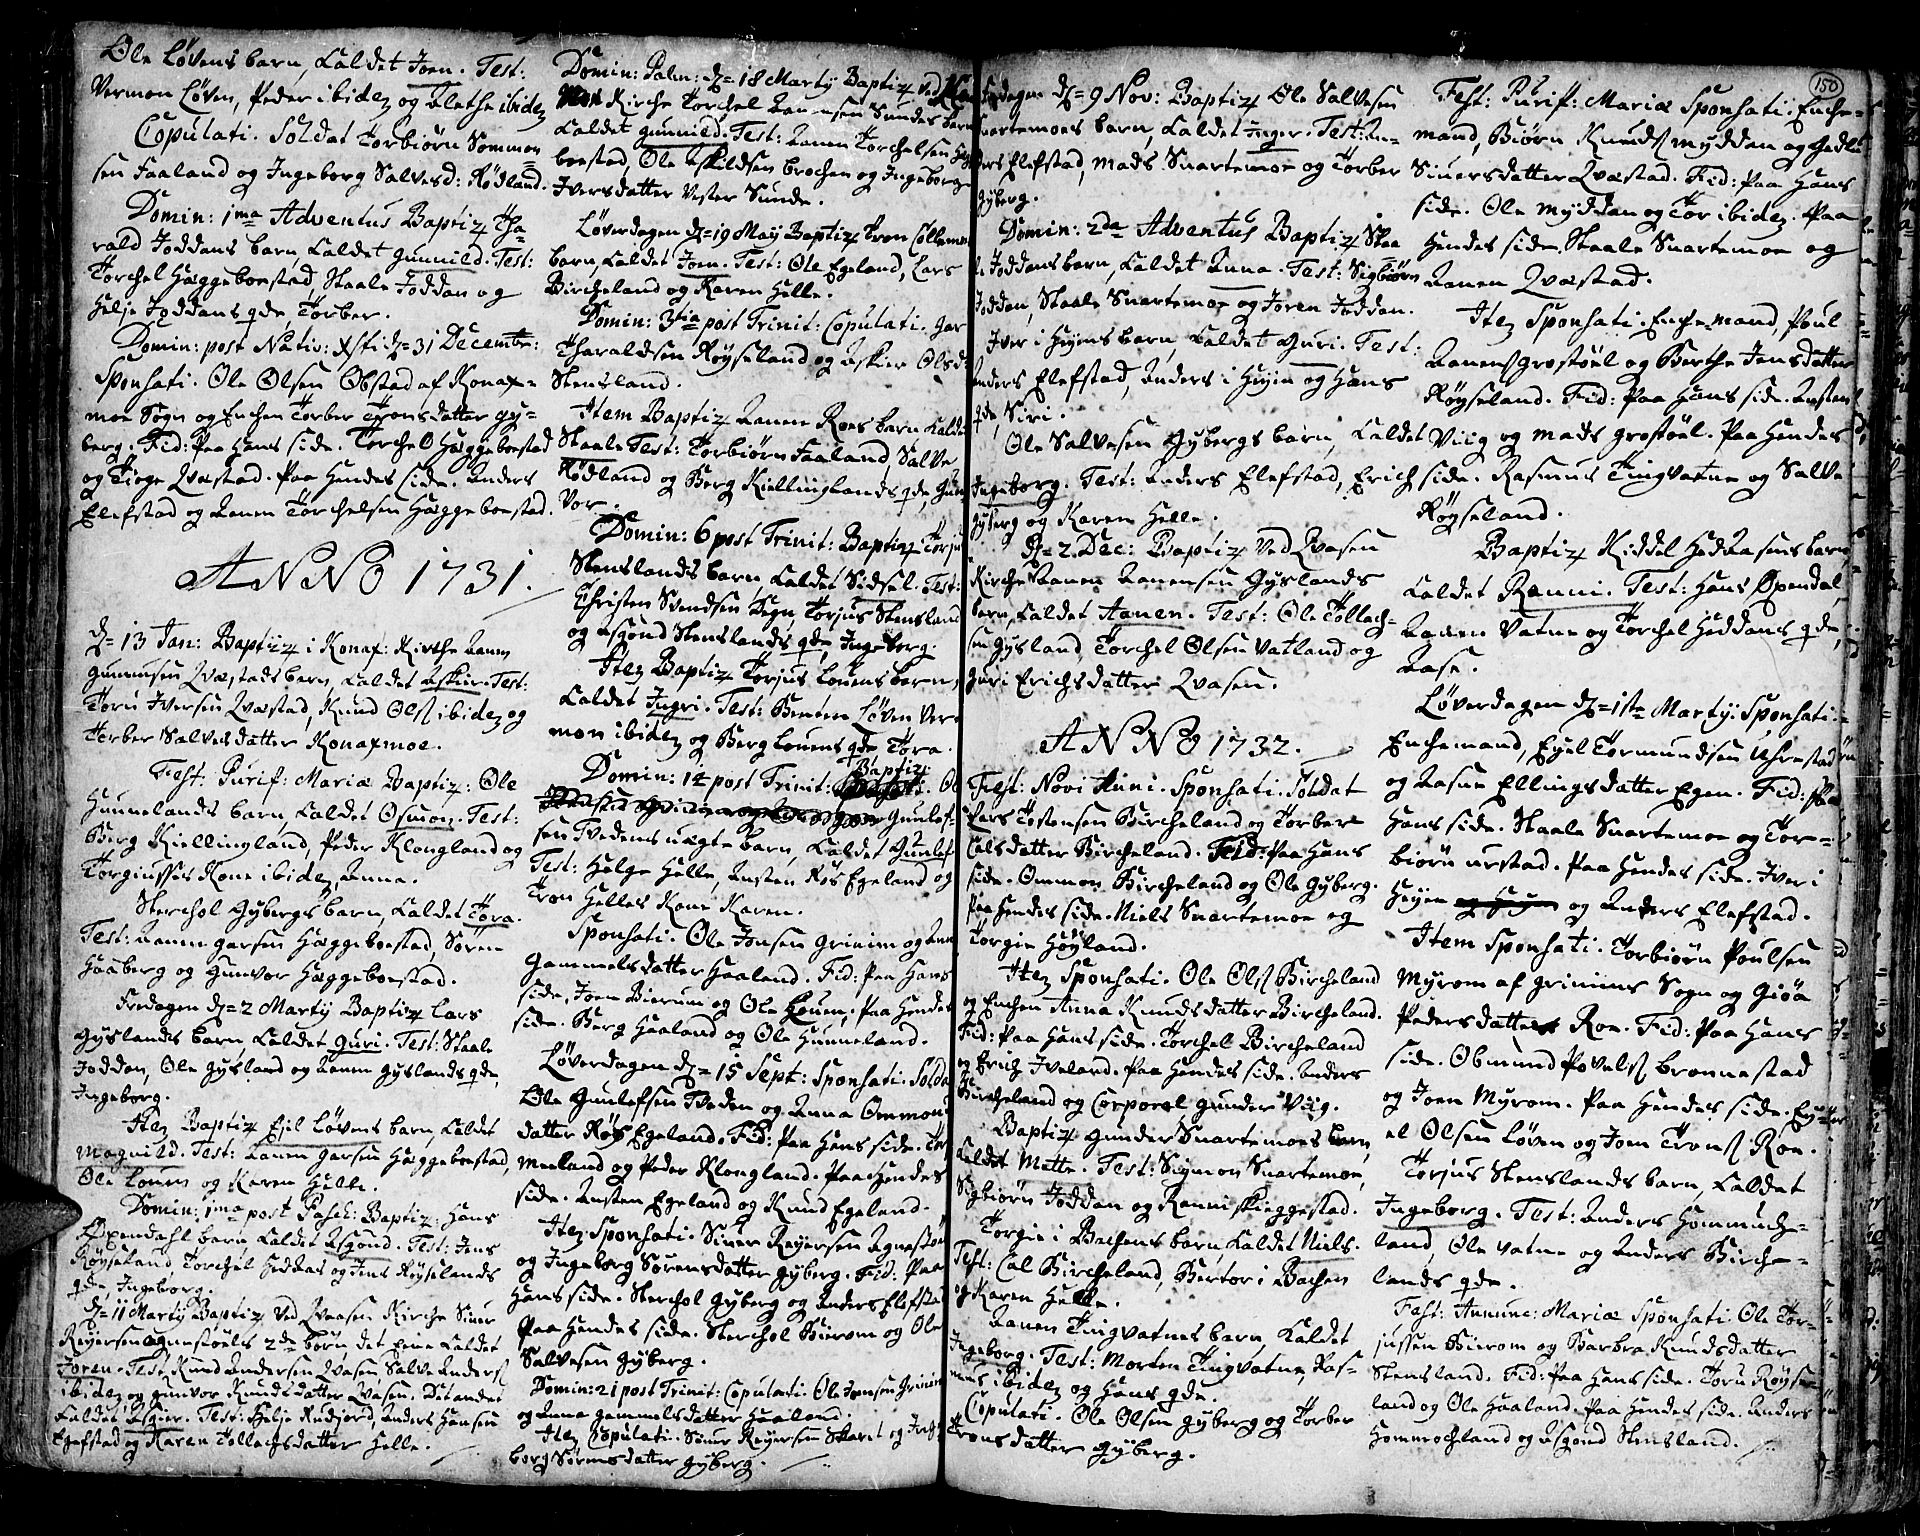 Ole Løvens barn, Caldet Joen. Test:
Vermon Løven, Peder ibidez og Alethe ibidez
Copulati. Soldat Torbiørn Sommon=
sen Faaland og Ingeborg Salvesd: Rødland.
Domin: 1ma Adventus Baptiz Tha=
rald Joddans barn, Caldet Gunnild. Test:
Torchel Hæggeboestad, Staale Joddan og
Helje Joddans qde, Torber.
Domin: post Nativ: Xsti d= 31 Decembr:
Sponsati. Ole Olsen Obstad af Konaf=
moe Sogn og Enchen Torber Tronsdatter Gy=
berg. Fid: Paa Hans side. Torchel Hæggeboestad
og Tioge Qvæstad. Paa Hendes side. Anders
Elefstad og Aanen Torchelsen Hæggeboestad.
ANNO 1731.
d= 13 Jan: Baptiz i Konaf: Kirche Aanen
Gunnusen Qvæstads barn, Caldet Eskier. Test:
Toru Iversen Qvæstad, Knud Ols ibidez og
Torber Salvesdatter Konafmoe.
Fest. Purif: Mariæ Baptiz: Ole
Hunnelands barn, Caldet Osmon. Test:
Berg Kiellingland, Peder Klongland og
Torgiusses Kone ibidez, Anna.
Sterchol Gybergs barn, Caldet Tora.
Test: Aanen Garsen Hæggeboestad, Sören
Haaberg og Gunvor Hæggeboestad.
Fredagen d= 2 Marty Baptiz Lars
Gyslands barn Caldet Guri. Test: Staale
Joddan, Ole Gysland og Aanen Gyslands qde,
Ingeborg.
Itez Baptiz Ejel Løvens barn, Caldet
Magnild. Test: Aanen Garsen Hæggeboestad,
Ole Louen og Karen Helle.
Domin: 1ma post Pasch: Baptiz: Hans
Opendahl barn Caldet Asgond. Test: Jens
Røyseland Torchel Heddan og Jens Røyselands
qde, Ingeborg.
d= 11 Marty Baptiz ved Qvaasen Kirche Siuer
Reyersen Agnestøuls 2de børn det Eene Caldet
Joren. Test. Knud Andersen Qvasen, Salve Anders
ibidez og Gunvor Knudsdatter Qvasen. Det andet
Caldet Asgier. Test: Helje Rudjord, Anders Hansen
Egefstad og Karen Tollachsdatter Helle.
Domin: Palm: d= 18 Marty Baptiz ved
Kirche Torchel Aanensen Sundes barn
Caldet Gunnild. Test: Aanen Torchelsen
boestad, Ole Eskildsen Brochen og Ingeborg
Iversdatter Vester Sunde.
Løverdagen d= 19 May Baptiz Tron
barn, Caldet Joen. Test: Ole Egeland, Lars
Bircheland og Karen Helle.
Domin: 3tia post Trinit: Copulati. Gar
Tharaldsen Røyseland og Askier Olsd:
Stensland.
Item Baptiz Aanen Roes barn Caldet
Staale Test: Torbiørn Faaland, Salve
Rødland og Berg Kiellinglands qde, Gun
vor.
Domin: 6 post Trinit: Baptiz Torjus
Stenslands barn, Caldet Sidsel. Test:
Christen Svendsen Degn, Torjus Stensland
og Asgond Stenslands qde, Ingeborg.
Itez Baptiz Torjus Louens barn,
Caldet Ingri. Test: Benten Løven Ver
mon ibidez og Berg Louens qde Tora.
Domin: 14 post Trinit: Baptiz: Ol
Gunlef=
sen Tvedens uægte barn, Caldet Gunlef
Test: Helge Helle, Ansten Røs Egeland og
Tron Helles Kone Karen.
Sponsati. Ole Jonsen Grinim og Ann
Gammelsdatter Haaland. Fid: Paa Hans
side, Joen Bierum og Ole Louen, Paa Hendes
side. Berg Haaland og Ole Hunneland.
Løverdagen d= 15 Sept: Sponsati. Solda
Ole Gunlefsen Tveden og Anna Ommond
datter Røys Egeland. Fid: Paa Hans side. Tor
meeland og Peder Klongland. Paa Hendes
side. Ansten Egeland og Knud Egeland.
Itez Sponsati. Siuer Reyersen Agnestøu
og Ingeborg Sørensdatter Gyberg. Fid: Paa
Hans side. Sterchol Gyberg og Anders Elefsta
Paa Hendes side. Sterchol Bierom og Ole
Salvesen Gyberg.
Domin: 21 post Trinit: Copulati. Ole Jonsen Grinim
og Anna Gammelsdatter Haaland.
Itez Copulati. Siuer Reyersen Skaret og Inge
borg Sørensdatter Gyberg.
d= 9 Nov: Baptiz Ole Salvesen
Snartemoes barn, Caldet Inger. Test: An=
ders Elefstad, Mads Snartemoe og Torber
Gyberg.
Domin: 2da Adventus Baptiz Staa
le Joddans barn, Caldet Anna. Test: Sigbiørn
Joddan, Staale Snartemoe og Joren Joddan.
Iver i Hejens barn, Caldet Guri. Test:
Anders Elefstad, Anders i Hejen og Hans
qde, Siri.
Ole Salvesen Gybergs barn, Caldet
Ingeborg. Test: Anders Elefstad, Erich
Gyberg og Karen Helle.
d= 2 Dec: Baptiz ved Qvasen
Kirche Aanen Aanensen Gyslands
barn, Caldet Aanen. Test: Ole Tollach=
sen Gysland, Torchel Olsen Vatland og
Guri Erichsdatter Qvasen.
ANNO 1732.
Fest: Novi Anni. Sponsati. Soldat
Lars Tostensen Bircheland og Torber
Calsdatter Bircheland. Fid: Paa Hans
side. Ommon Bircheland og Ole Gyberg.
Paa Hendes side. Niels Snartemoe og
Torgie Høyland.
Itez Sponsati. Ole Ols Bircheland
og Enchen Anna Knudsdatter Bircheland.
Fid: Paa Hans side. Torchel Bircheland
og Erich Iveland. Paa Hendes side. Anders
Bircheland og Corporal Gunder Viig.
Baptiz Gunder Snartemoes barn,
Caldet Mette. Test: Siymon Snartemoe,
Sigbiørn Joddan og Ranni Skieggestad.
Torgie i Bachens barn Caldet Niels.
Test: Cal Bircheland, Bertor i Bachen
og Karen Helle.
Aanen Tingvatnes barn, Caldet
Ingeborg. Test: Morten Tingvatne, Ras=
mus ibidez og Hans qde.
Copulati. Ole Olsen Gyberg og Torber
Tronsdatter Gyberg.
150
Fest: Purif: Mariæ Sponsati. Enche=
mand, Biørn Knuds Myddan og Gedlu
Siuersdatter Qvæstad. Fid: Paa Hans
side. Ole Myddan og Tor ibidez. Paa
Hendes side. Staale Snartemoe og
Aanen Qvæstad.
Itez Sponsati. Enchemand, Poul
Aanens Grostøel og Berthe Jensdatter
Røyseland. Fid: Paa Hans side. Ansten
Viig og Mads Grostøel. Paa Hendes
side. Rasmus Tingvatne og Salve
Røyseland.
Baptiz Kiddel Heddansens barn,
Caldet Ranni. Test: Hans Opendal,
Aanen Vatne og Torchel Heddans qde,
Aase.
Løverdagen d= 1ste Marty. Sponsati.
Enchemand, Ejel Tormundsen Uhrestad
og Aasne Ellingsdatter Egen. Fid: Paa
Hans side. Staale Snartemoe og Tor=
biørn Urstad. Paa Hendes side. Iver i
Hejen og Anders Elefstad.
Item Sponsati. Torbiørn Poulsen
Myrom af Grinims Sogn og Giøa
Pedersdatter Roe. Fid: Paa Hans
side. Obmund Povels Bronnestad
og Joen Myrom. Paa Hendes side. Ey=
el Olsen Løven og Joen Trons Roe.
Torjus Stenslands barn, Caldet
Ingeborg. Test: Anders Hommuche=
land, Ole Vatne og Anders Birche=
lands qde.
Fest: Annunc: Mariæ Sponsati Ole Tor=
jussen Bierom og Barbra Knudsdatter
Stensland. Fid: Paa Hans side. Toru Røyse=
land og Ole Haaland. Paa Hendes side. Anders
Hommochland og Asgond Stensland.